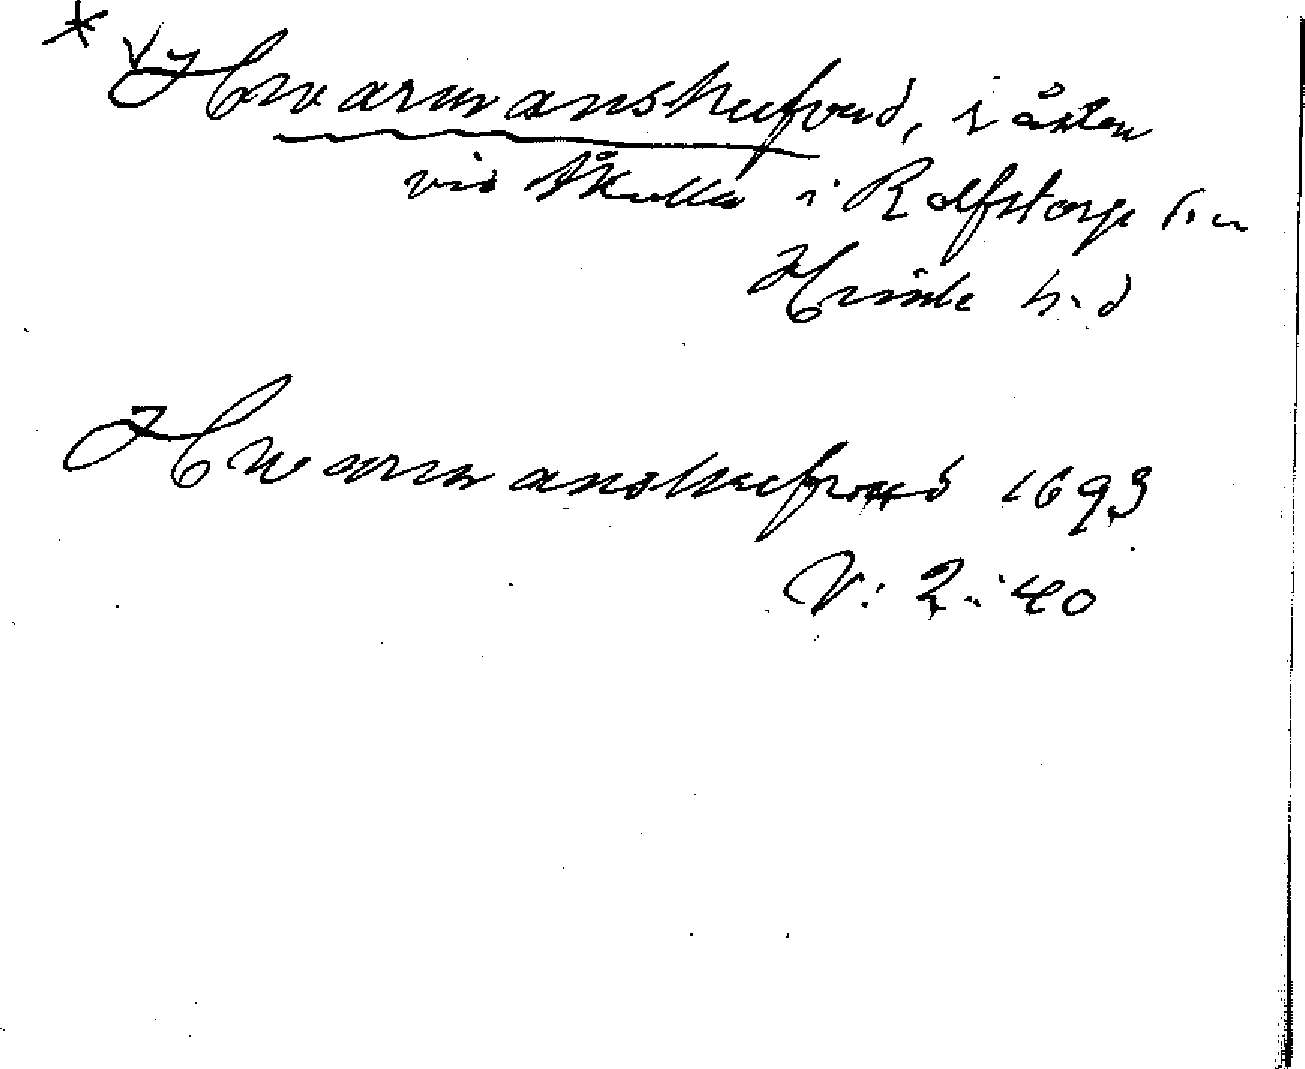 * √ Hwarmanshufvud, i åsen
vid Åkulla i Rolfstorps s:n
Himle h:d
Hwarmanshufwud 1693
V: 2: 40